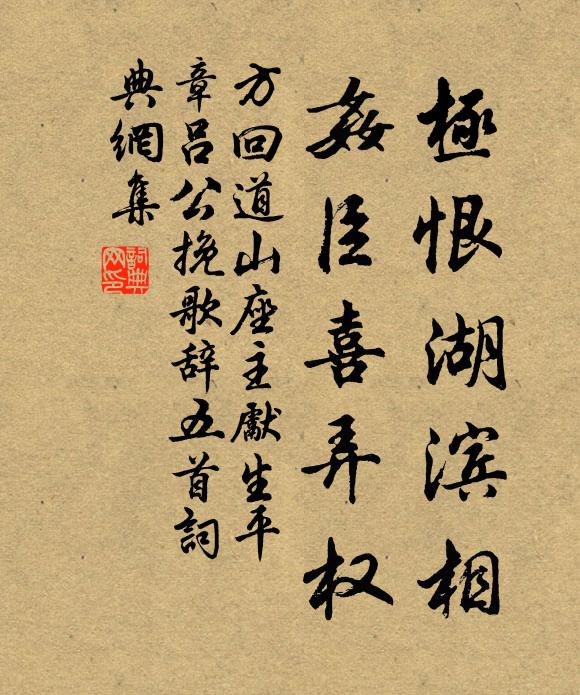 極恨湖滨相
姦臣喜弄权
方回道山座主獻生平
章呂公挽歌辞五首詞
典網集
詞典網印